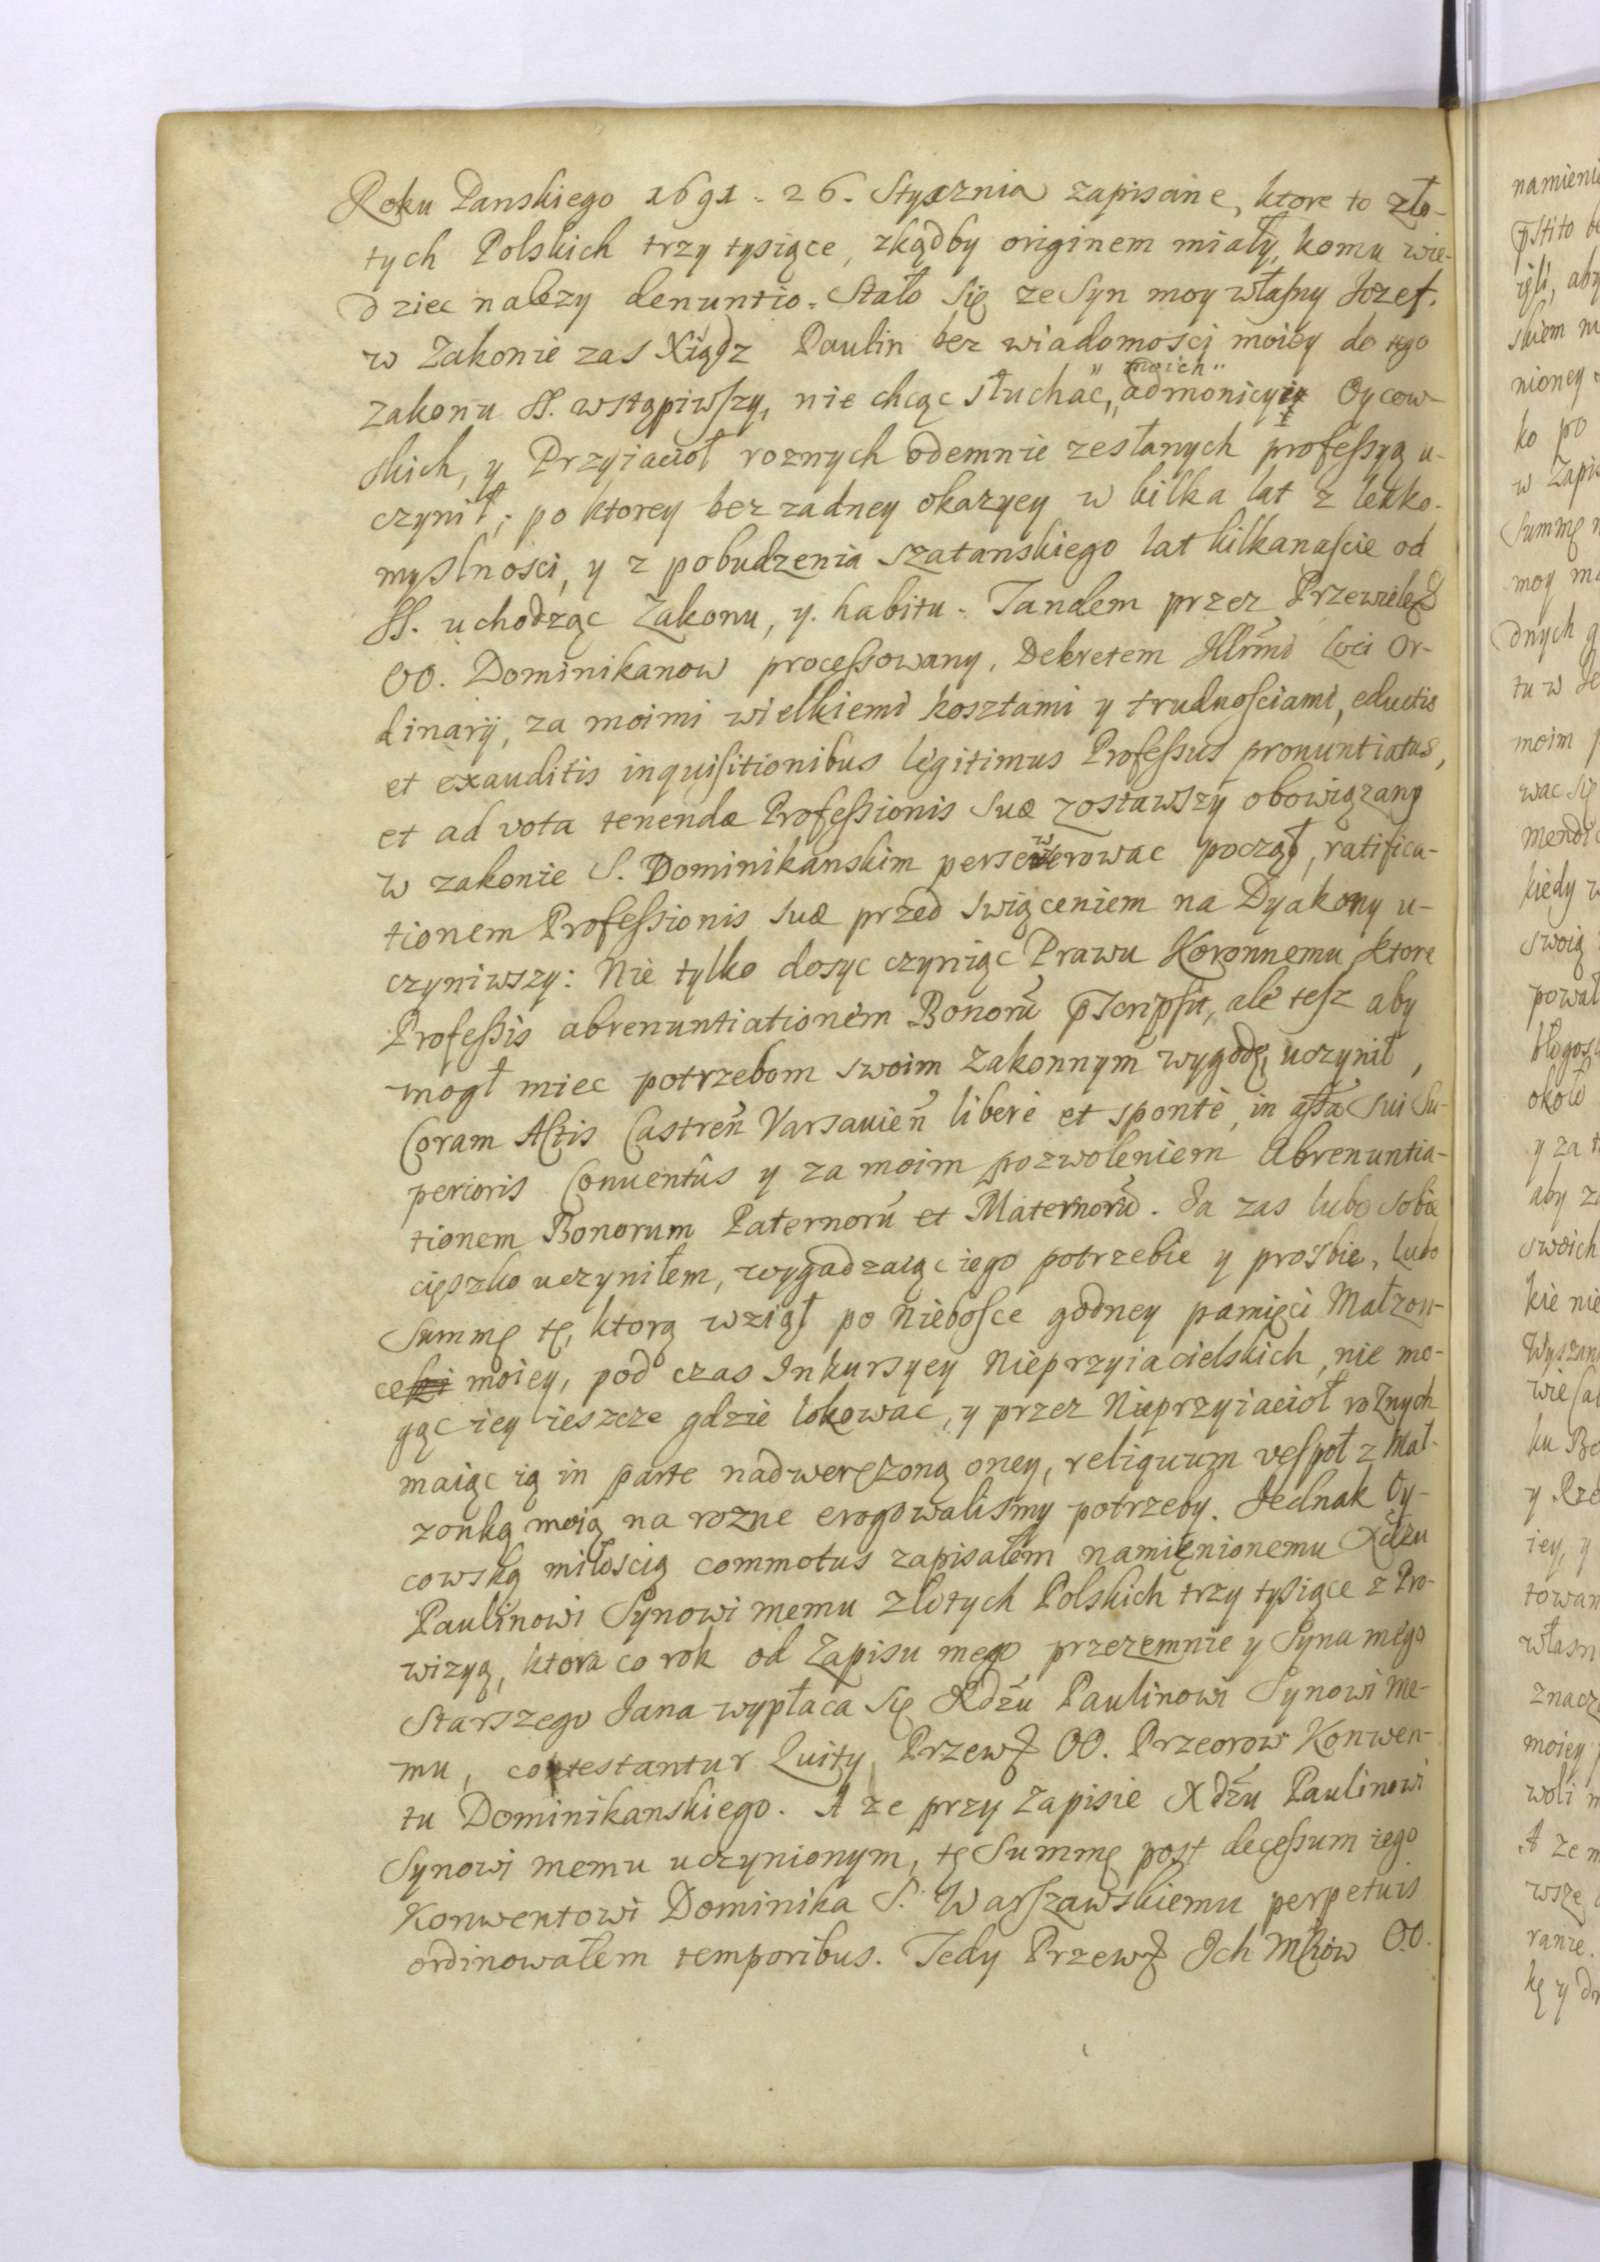 Roku Panskiego 1691. 26. Stycznia zapisane, ktore to zło-
tych Polskich trzy tysiące, zkądby originem miały, komu wie-
dziec nalezy denuntio. Stało się ze Syn moy własny Jozef.
w Zakonie zas Xiądz Paulin bez wiadomosci moiey do tego
zakonu SS. wstąpiwszy, nie chcąc słuchac, moich admonicyi Oycow-
skich, y Przyiacioł roznych odemnie zesłanych professyą u-
czynił; po ktorey bez zadney okazyey w kilka lat z lekko-
myslnosci, y z pobudzenia szatanskiego lat kilkanascie od
SS. uchodząc Zakonu, y. habitu. Tandem przez Przewieleb
OO. Dominikanow processowany, Dekretem Illrmi Loci Or-
dinarij, za moimi wielkiemi kosztami y trudnosciami, eductis
et exauditis inquisitionibus legitimus Professus pronuntiatus,
et ad vota tenenda Professionis suæ zostawszy obowiązany
w zakonie S. Dominikanskim persewerowac począł, ratifica-
tionem Professionis suæ przed swięceniem na Dyakony u-
czyniwszy: Nie tylko dosyc czyniąc Prawu Koronnemu ktore
Professis abrenuntiationem Bonorũ p̃scripsit, ale tesz aby
mogł miec potrzebom swoim Zakonnym wygodę, uczynił,
Coram Actis Castreñ Varsavieñ liberè et spontè, in assã sui Su-
perioris Conuentûs y za moim pozwoleniem Abrenuntia-
tionem Bonorum Paternorũ et Maternorũ. Ja zas lubo sobie
cięszko uczyniłem, wygadzaiąc iego potrzebie y prosbie, lubo
Summę tę, ktorą wziął po Nieboszce godney pamięci Małzon-
ce moiey, pod czas Inkursyey Nieprzyiacielskich, nie mo-
gąc iey ieszcze gdzie lokowac, y przez Nieprzyiacioł roznych
maiąc ią in parte nadwerężoną oney, reliquum vespoł z Mał-
zonką moią na rozne erogowalismy potrzeby. Jednak Oy-
cowską miłoscią commotus zapisałem namięnionemu Xdzu
Paulinowi Synowi memu złotych Polskich trzy tysiące z Pro-
wizyą, ktora co rok od Zapisu mego przezemnie y Syna mego
Starszego Jana wypłaca się Xdzu Paulinowi Synowi me-
mu, contestantur Quity Przew OO. Przeorow Konwen-
tu Dominikanskiego. A ze przy Zapisie Xdzu Paulinowi
Synowi memu uczynionym, tę Summę post decessum iego
Konwentowi Dominika S. Warszawskiemu perpetuis
ordinowałem temporibus. Tedy Przew Ich Mciow OO.